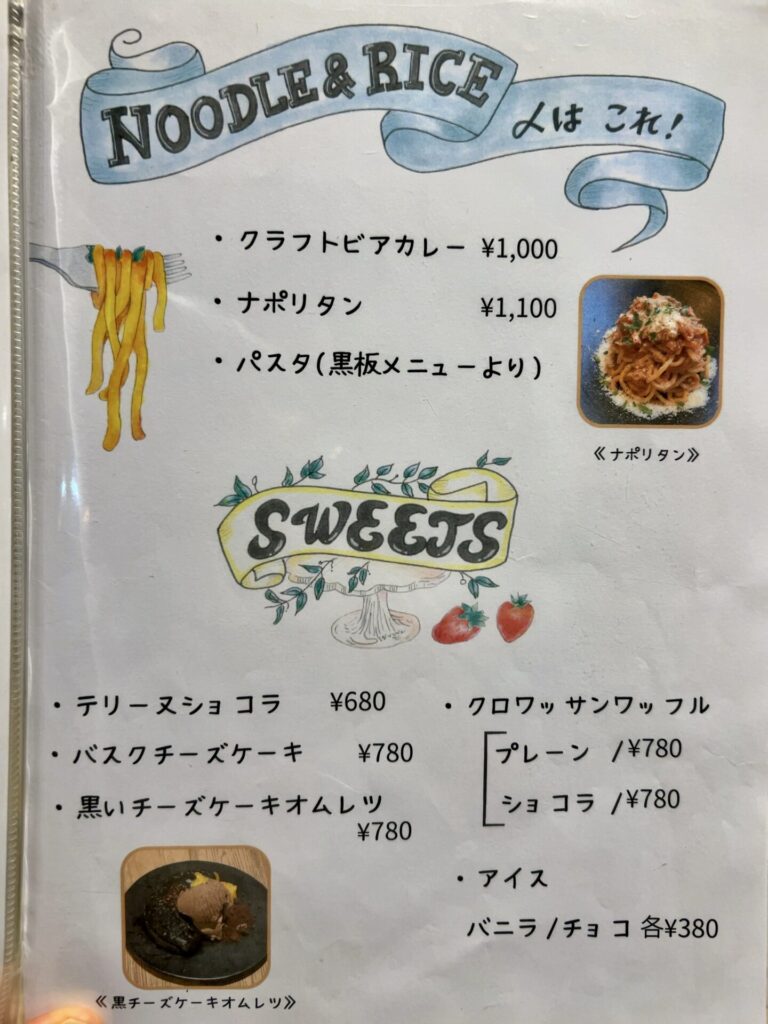 NOODLE & RICE
〆は これ!
・クラフトビアカレー ¥1,000
・ナポリタン ¥1,100
・パスタ(黒板メニューより)
《ナポリタン》
SWEETS
・テリーヌショコラ ¥680
・バスクチーズケーキ ¥780
・黒いチーズケーキオムレツ
¥780
《黒チーズケーキオムレツ》
・クロワッサンワッフル
プレーン /¥780
ショコラ /¥780
・アイス
バニラ/チョコ 各¥380